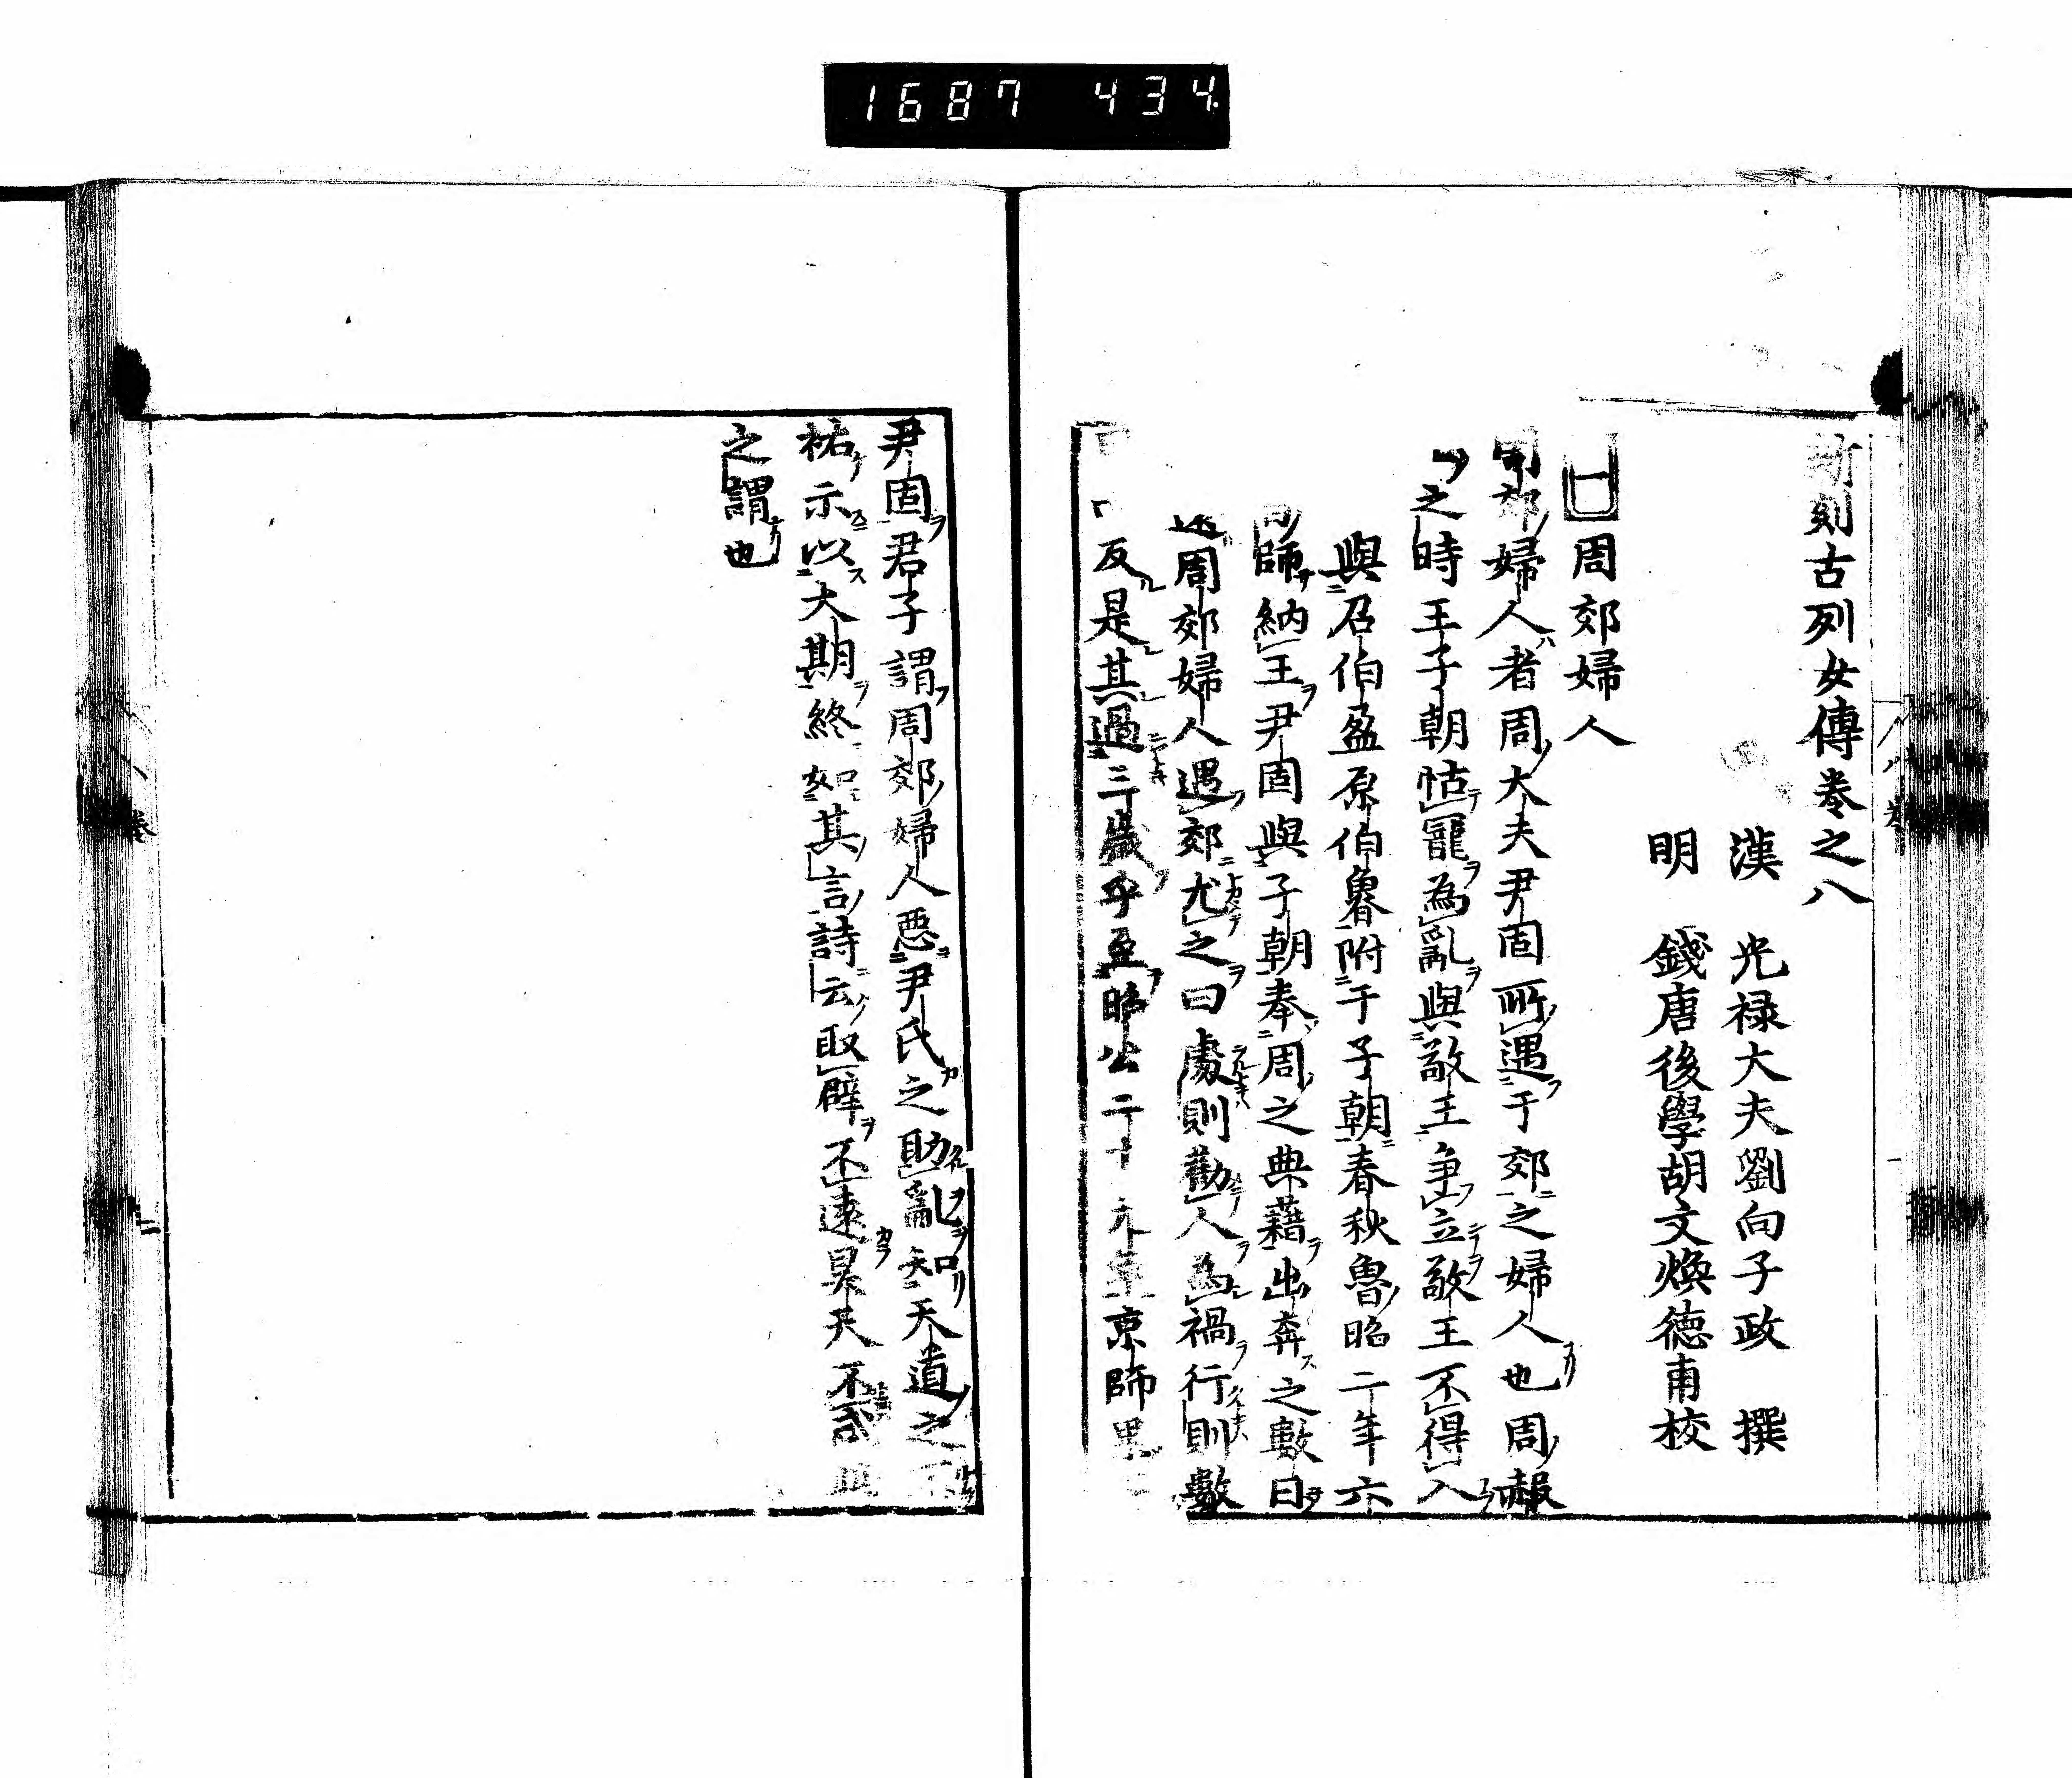 1687 434
新刻古列女傳卷之八
漢 光禄大夫劉向子政 撰
明 錢唐後學胡文煥德甫校
周郊婦人
周郊婦人者周大夫尹固所遇于郊之婦人也周赧
之時王子朝怙寵為亂與敬王争立敬王不得入
與召伯盈原伯魯附于子朝春秋魯昭二年六
師納王尹固與子朝奉周之典籍出奔之數日
周郊婦人遇郊尤之曰處則勸人為禍行則數
反是其過三歳乎至昭公二十九年京師果
尹固君子謂周郊婦人惡尹氏之助亂知天道之不
祐示以大期終如其言詩云取辟不遠昊天不忒
之謂也